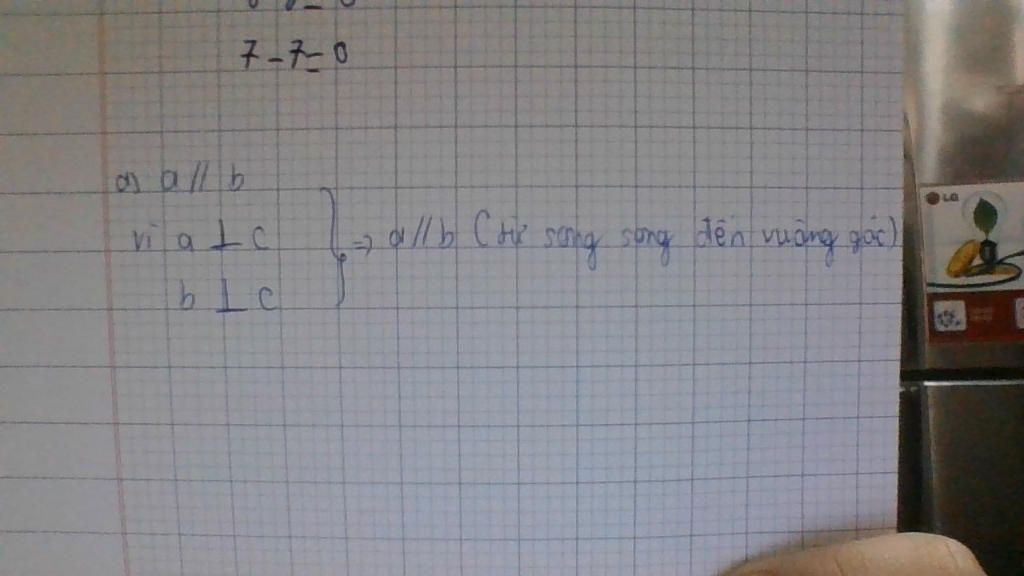 7 - 7 = 0
a) a // b
vì a ⊥ c
b ⊥ c
} => a // b (từ song song đến vuông góc)
LG